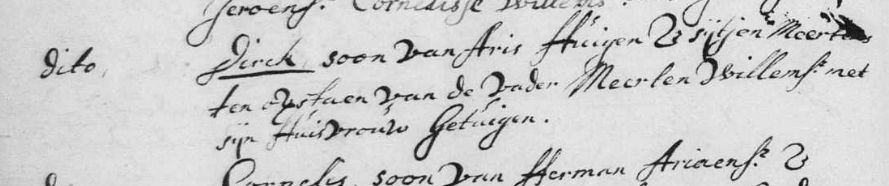 Jeroens: Cornelisse Willems:
dito, Dirck, soon van Aris Huigen & sijtjen Meertens
ten oystaen van de vader Meerten Willems: net
sijn Huisvrouw Getuigen.
Cornelis, soon van Herman Ariaens: &